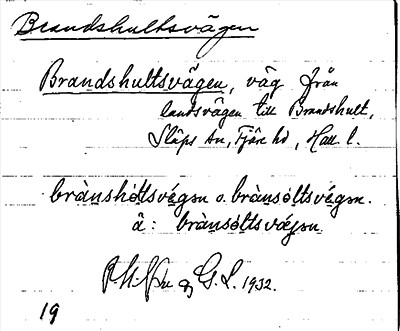 Brandshultsvägen
Brandshultsvägen, väg från
landsvägen till Brandshult,
Släps sn, Fjäre hd, Hall. l.
brànshòltsvé̱gən o. brànsòltsvé̱gən.
ä: brànsòltsvágən
& G. L. 1932.
19